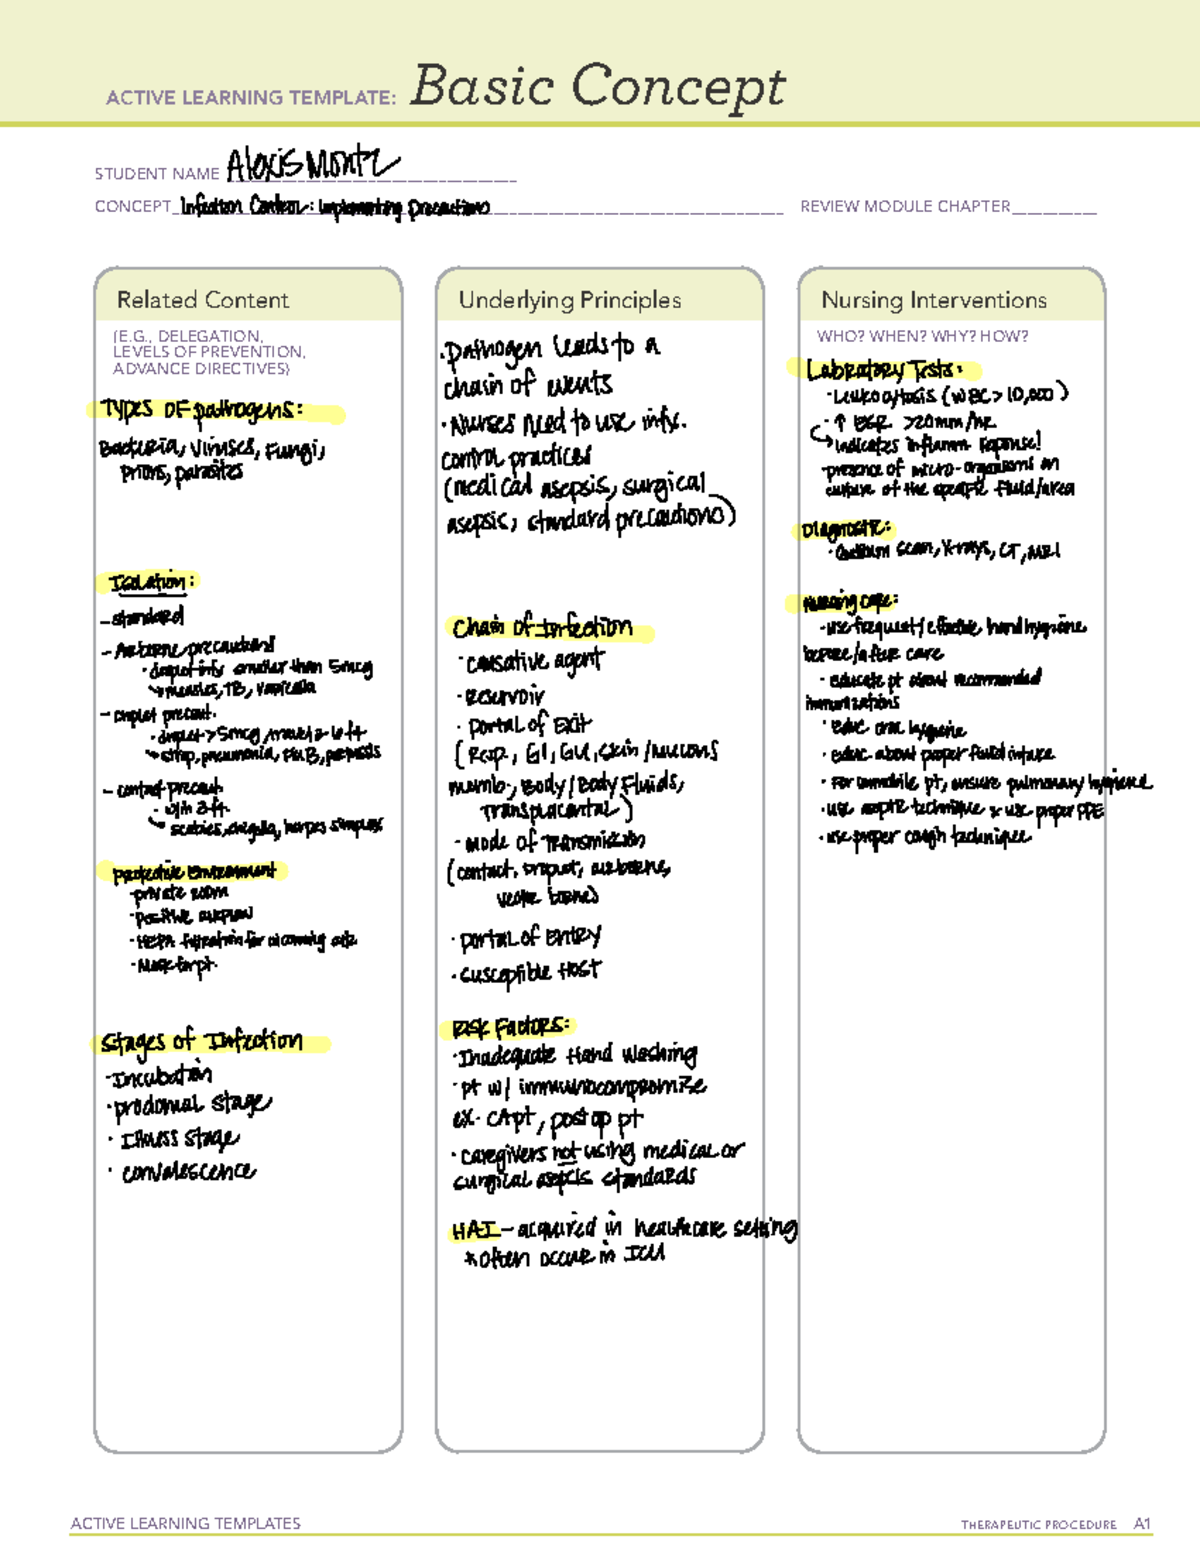 ACTIVE LEARNING TEMPLATE: Basic Concept
STUDENT NAME Alexis Montz
CONCEPT Infection Control: Implementing Precautions
REVIEW MODULE CHAPTER
Related Content
(E.G., DELEGATION,
LEVELS OF PREVENTION,
ADVANCE DIRECTIVES)
Types of pathogens:
Bacteria, Viruses, Fungi,
prions, parasites
Isolation:
- standard
- Airborne precautions
• droplet smaller than 5mcg
measles, TB, varicella
- droplet precaut.
• droplet > 5mcg, travel 3-6 ft
strep, pneumonia, pertussis
- contact precaut.
- w/in 3 ft.
scabies, shigella, herpes simplex
protective Environment
• private room
• positive airflow
• HEPA filtration for incoming air
• Mask for pt.
Stages of Infection
• Incubation
• prodomal stage
• Illness stage
• convalescence
Underlying Principles
• pathogen leads to a
chain of events
• Nurses need to use infx.
control practices
(medical asepsis, surgical
asepsis, standard precautions)
Chain of Infection
• causative agent
• Reservoir
• Portal of Exit
(Resp, GI, GU, skin/mucous
memb, Body/Body Fluids,
Transplacental)
• mode of Transmission
(contact, Droplet, airborne,
vector borne)
• portal of Entry
• susceptible Host
Risk Factors:
• Inadequate Hand Washing
• pt w/ immunocompromize
ex- CA pt, post op pt
• caregivers not using medical or
surgical asepsis standards
HAI - acquired in healthcare setting
* often occur in ICU
Nursing Interventions
WHO? WHEN? WHY? HOW?
Laboratory Tests:
• Leukocytosis (WBC > 10,000)
• ↑ ESR >20mm/hr
indicates inflamm response!
• presence of micro-organisms on
culture of the specific fluid/area
Diagnostic:
• Gallium scan, X-rays, CT, MRI
Nursing care:
• use frequent/effective hand hygiene
before/after care
• educate pt about recommended
immunizations
• Educ oral hygiene
• educ about proper fluid intake
• For immobile pt, ensure pulmonary hygiene
• use aseptic technique & use proper PPE
• use proper cough technique
ACTIVE LEARNING TEMPLATES
THERAPEUTIC PROCEDURE A1